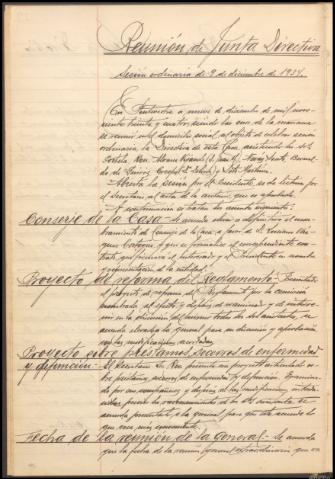 Reunión de Junta Directiva
Sesión ordinaria de 9 de diciembre de 1934
En Pontevedra a nueve de diciembre de mil nove-
cientos treinta y cuatro, siendo las once de la mañana
se reunió en el domicilio social, al objeto de celebrar sesión
ordinaria la Directiva de esta Casa, asistiendo los Srs.
Abierta la sesión por el Presidente, se da lectura por
el Secretario al acta de la anterior, que es aprobada.
A continuación se tratan los asuntos siguientes:
Conserje de la Casa.- Se acuerda elevar a definitivo el nom-
bramiento de Conserje de la Casa a favor de D.
y que se formalice el correspondiente con-
trato que firmará el interesado y el Presidente en nombre
y representación de la entidad.
Proyecto de reforma del Reglamento.-
el proyecto de reforma del Reglamento por la comisión
nombrada al efecto y después de examinado y de
en la discusión del mismo todos los asistentes, se
acuerda elevarlo a la general para su discusión y aprobación
con las modificaciones acordadas.
Proyecto sobre préstamos, socorros de enfermedad
y defunción.- El Secretario Sr. Rey presenta un proyecto
sobre préstamos, socorros de enfermedad y defunción. Examina-
do por sus compañeros y después de las modificaciones
se
acuerda presentarlo a la general para que ésta acuerde lo
que crea más conveniente.
Fecha de la reunión de la General.- Se acuerda
que la fecha de la reunión general extraordinaria que se